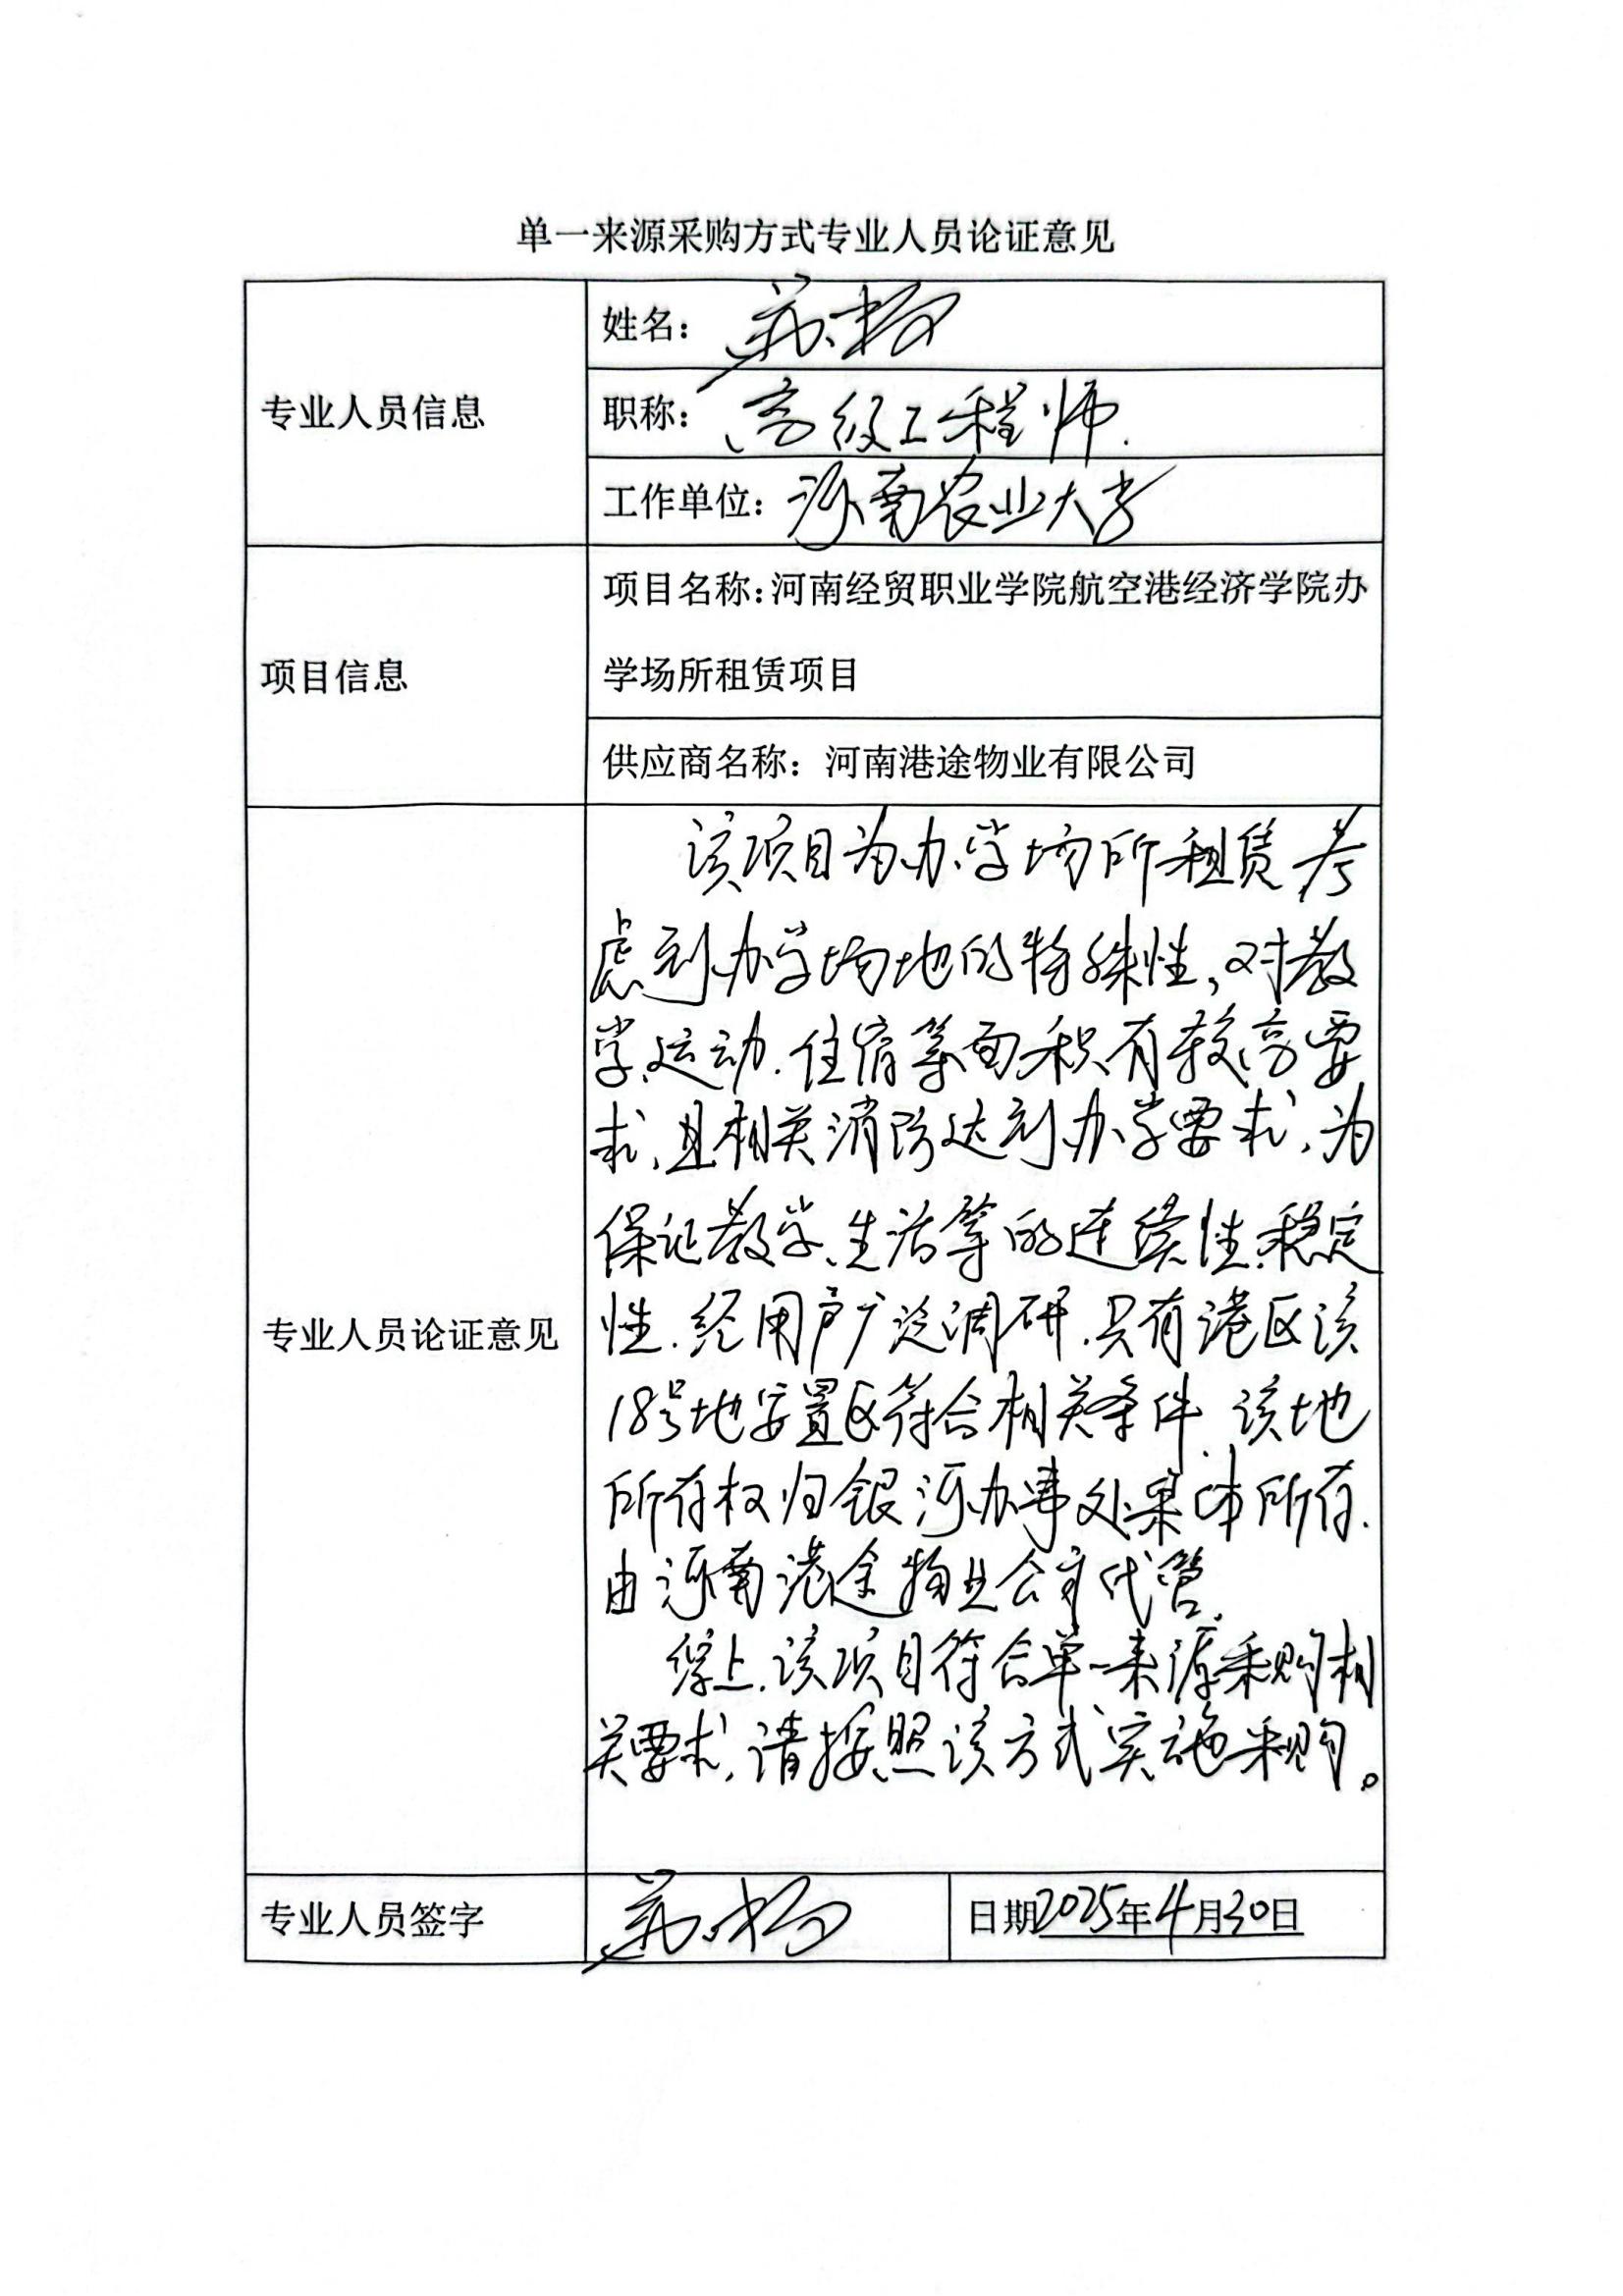 单一来源采购方式专业人员论证意见
专业人员信息
姓名：苏杨
职称：高级工程师.
工作单位：河南农业大学
项目信息
项目名称：河南经贸职业学院航空港经济学院办
学场所租赁项目
供应商名称：河南港途物业有限公司
专业人员论证意见
该项目为办学场所租赁考
虑到办学场地的特殊性，对教
学、运动、住宿等面积有较高要
求，且相关消防达到办学要求，为
保证教学、生活等的连续性、稳定
性，经用户广泛调研，只有港区该
18号地安置区符合相关条件，该地
所有权归银河办事处集体所有，
由河南港途物业公司代管。
综上，该项目符合单一来源采购相
关要求，请按照该方式实施采购。
专业人员签字
苏杨
日期2025年4月30日